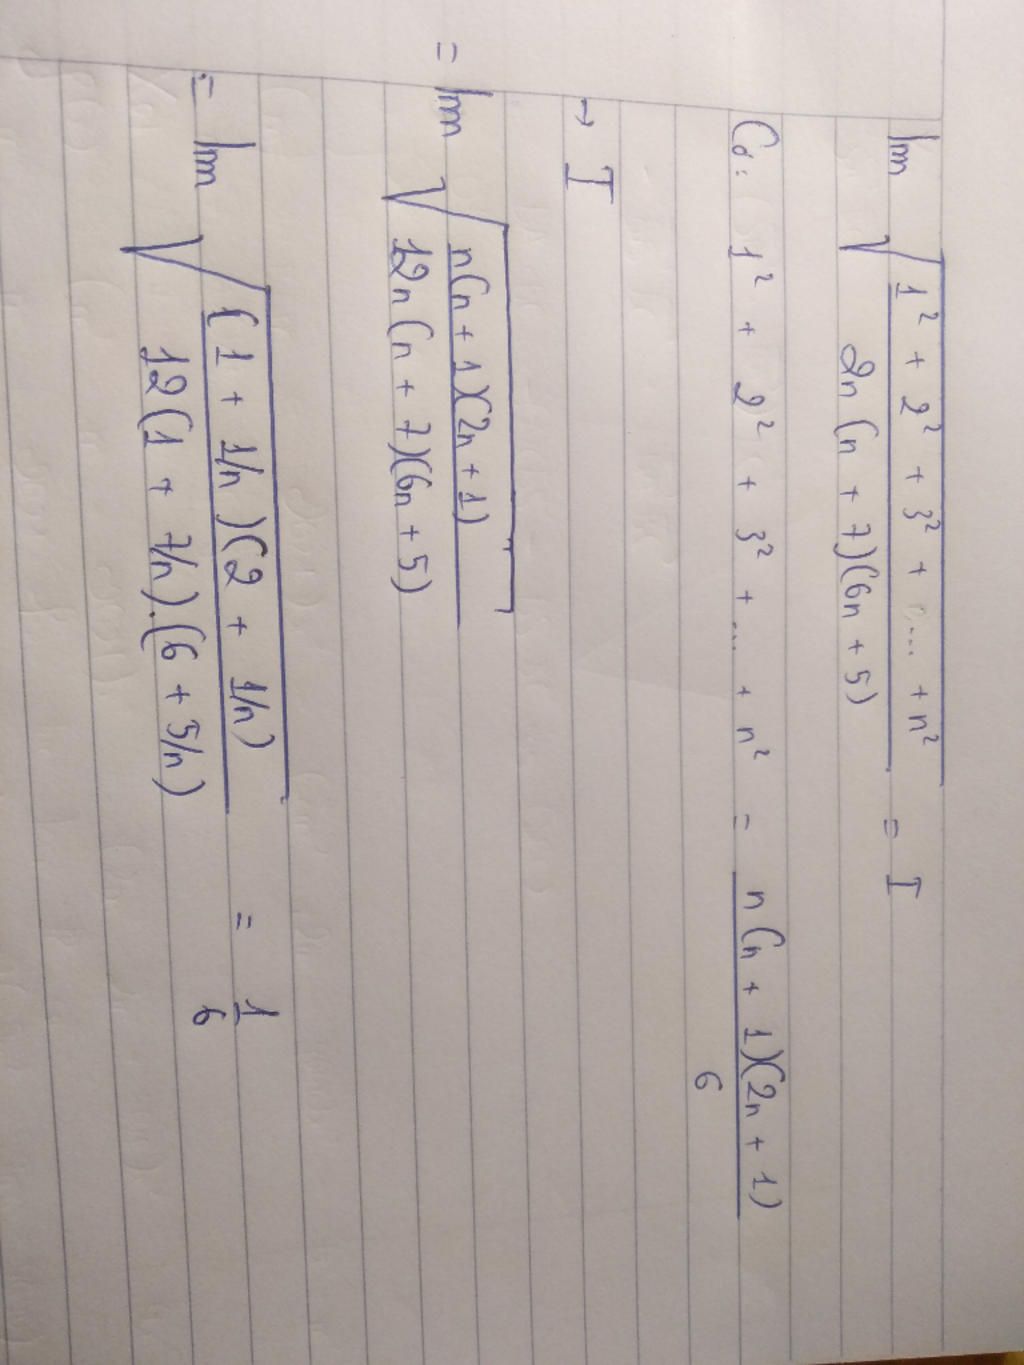 lim √(1² + 2² + 3² + .... + n² / 2n(n + 7)(6n + 5)) = I
Có: 1² + 2² + 3² + ... + n² = n(n + 1)(2n + 1) / 6
→ I
= lim √(n(n + 1)(2n + 1) / 12n(n + 7)(6n + 5))
= lim √((1 + 1/n)(2 + 1/n) / 12(1 + 7/n).(6 + 5/n)) = 1/6